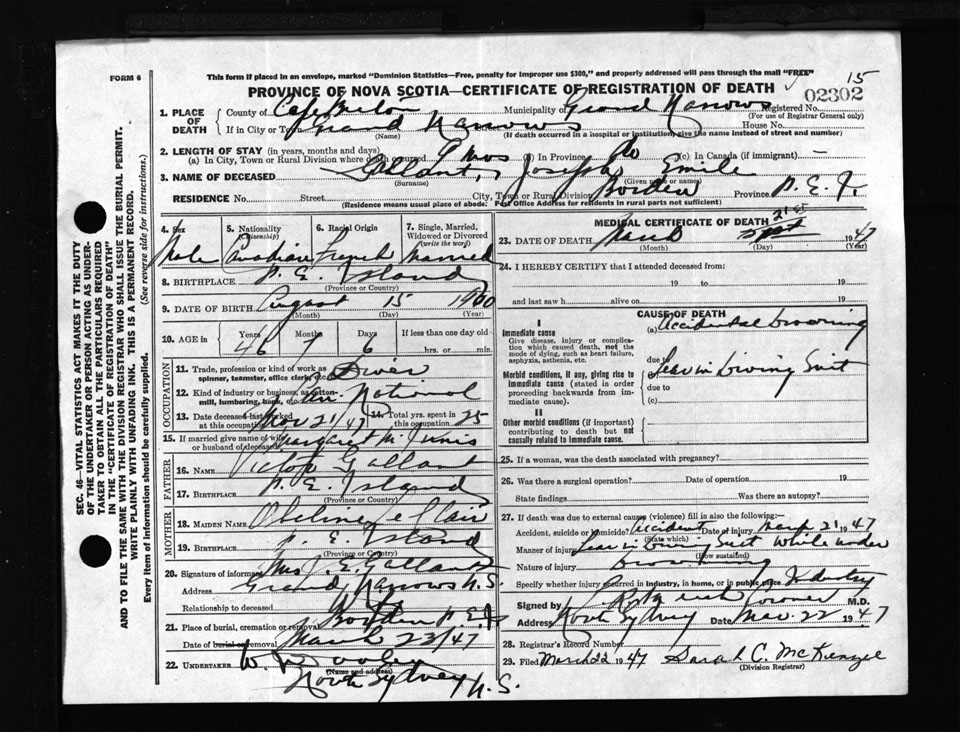 FORM 6
This form if placed in an envelope, marked "Dominion Statistics—Free, penalty for improper use $300," and properly addressed will pass through the mail "FREE"
PROVINCE OF NOVA SCOTIA—CERTIFICATE OF REGISTRATION OF DEATH
15
02302
1. PLACE OF DEATH
County of Cape Breton Municipality of Grand Narrows Registered No.
(For use of Registrar General only)
If in City or Town Grand Narrows House No.
(Name) (If death occurred in a hospital or institution, give the name instead of street and number)
2. LENGTH OF STAY (in years, months and days)
(a) In City, Town or Rural Division where death occurred mos (b) In Province do (c) In Canada (if immigrant) —
3. NAME OF DECEASED Gallant, Joseph Emile
(Surname) (Given name or name)
RESIDENCE No. Street City, Town or Rural Division Borden Province P.E.I.
(Residence means usual place of abode. Post Office Address for residents in rural parts not sufficient)
4. Sex
Male
5. Nationality
(Citizenship)
Canadian
6. Racial Origin
French
7. Single, Married, Widowed or Divorced
(write the word)
Married
8. BIRTHPLACE P. E. Island
(Province or Country)
9. DATE OF BIRTH August 15 1900
(Month) (Day) (Year)
10. AGE in
Years Months Days If less than one day old
46 7 6 hrs. or min.
OCCUPATION
11. Trade, profession or kind of work as spinner, teamster, office clerk, etc. Diver
12. Kind of industry or business, as cotton-mill, lumbering, bank, etc. National
13. Date deceased last worked at this occupation 21/47
14. Total yrs. spent in 25
15. If married give name of wife or husband of deceased Margaret M.
FATHER
16. Name Gallant
17. Birthplace P. E. Island
(Province or Country)
MOTHER
18. Maiden Name
19. Birthplace P. E. Island
(Province or Country)
20. Signature of informant Mrs J. E. Gallant
Address Grand Narrows N.S.
Relationship to deceased
21. Place of burial, cremation or removal Borden P.E.I.
Date of burial or removal March 23/47
22. UNDERTAKER W.
(Name and address)
North Sydney N.S.
MEDICAL CERTIFICATE OF DEATH
23. DATE OF DEATH March 21st 1947
(Month) (Day) (Year)
24. I HEREBY CERTIFY that I attended deceased from:
19 to 19
and last saw h alive on 19
CAUSE OF DEATH
I
Immediate cause
Give disease, injury or complication which caused death, not the mode of dying, such as heart failure, asphyxia, asthenia, etc.
(a) Accidental drowning
due to
Morbid conditions, if any, giving rise to immediate cause (stated in order proceeding backwards from immediate cause).
(b) in Diving Suit
due to
(c)
II
Other morbid conditions (if important) contributing to death but not causally related to immediate cause.
25. If a woman, was the death associated with pregnancy?
26. Was there a surgical operation? Date of operation 19
State findings Was there an autopsy?
27. If death was due to external causes (violence) fill in also the following:—
Accident, suicide or homicide? Accident Date of injury March 21 1947
(State which)
Manner of injury in Diving Suit while under
(How sustained)
Nature of injury Drowning
Specify whether injury occurred in industry, in home, or in public place Industry
Signed by Coroner M.D.
Address North Sydney Date Mar. 22 1947
28. Registrar's Record Number
29. Filed March 22 1947 Sarah C. McKenzie
(Division Registrar)
SEC. 46—VITAL STATISTICS ACT MAKES IT THE DUTY
OF THE UNDERTAKER OR PERSON ACTING AS UNDER-
TAKER TO OBTAIN ALL THE PARTICULARS REQUIRED
IN THE "CERTIFICATE OF REGISTRATION OF DEATH"
AND TO FILE THE SAME WITH THE DIVISION REGISTRAR WHO SHALL ISSUE THE BURIAL PERMIT.
WRITE PLAINLY WITH UNFADING INK. THIS IS A PERMANENT RECORD.
Every item of information should be carefully supplied. (See reverse side for instructions.)